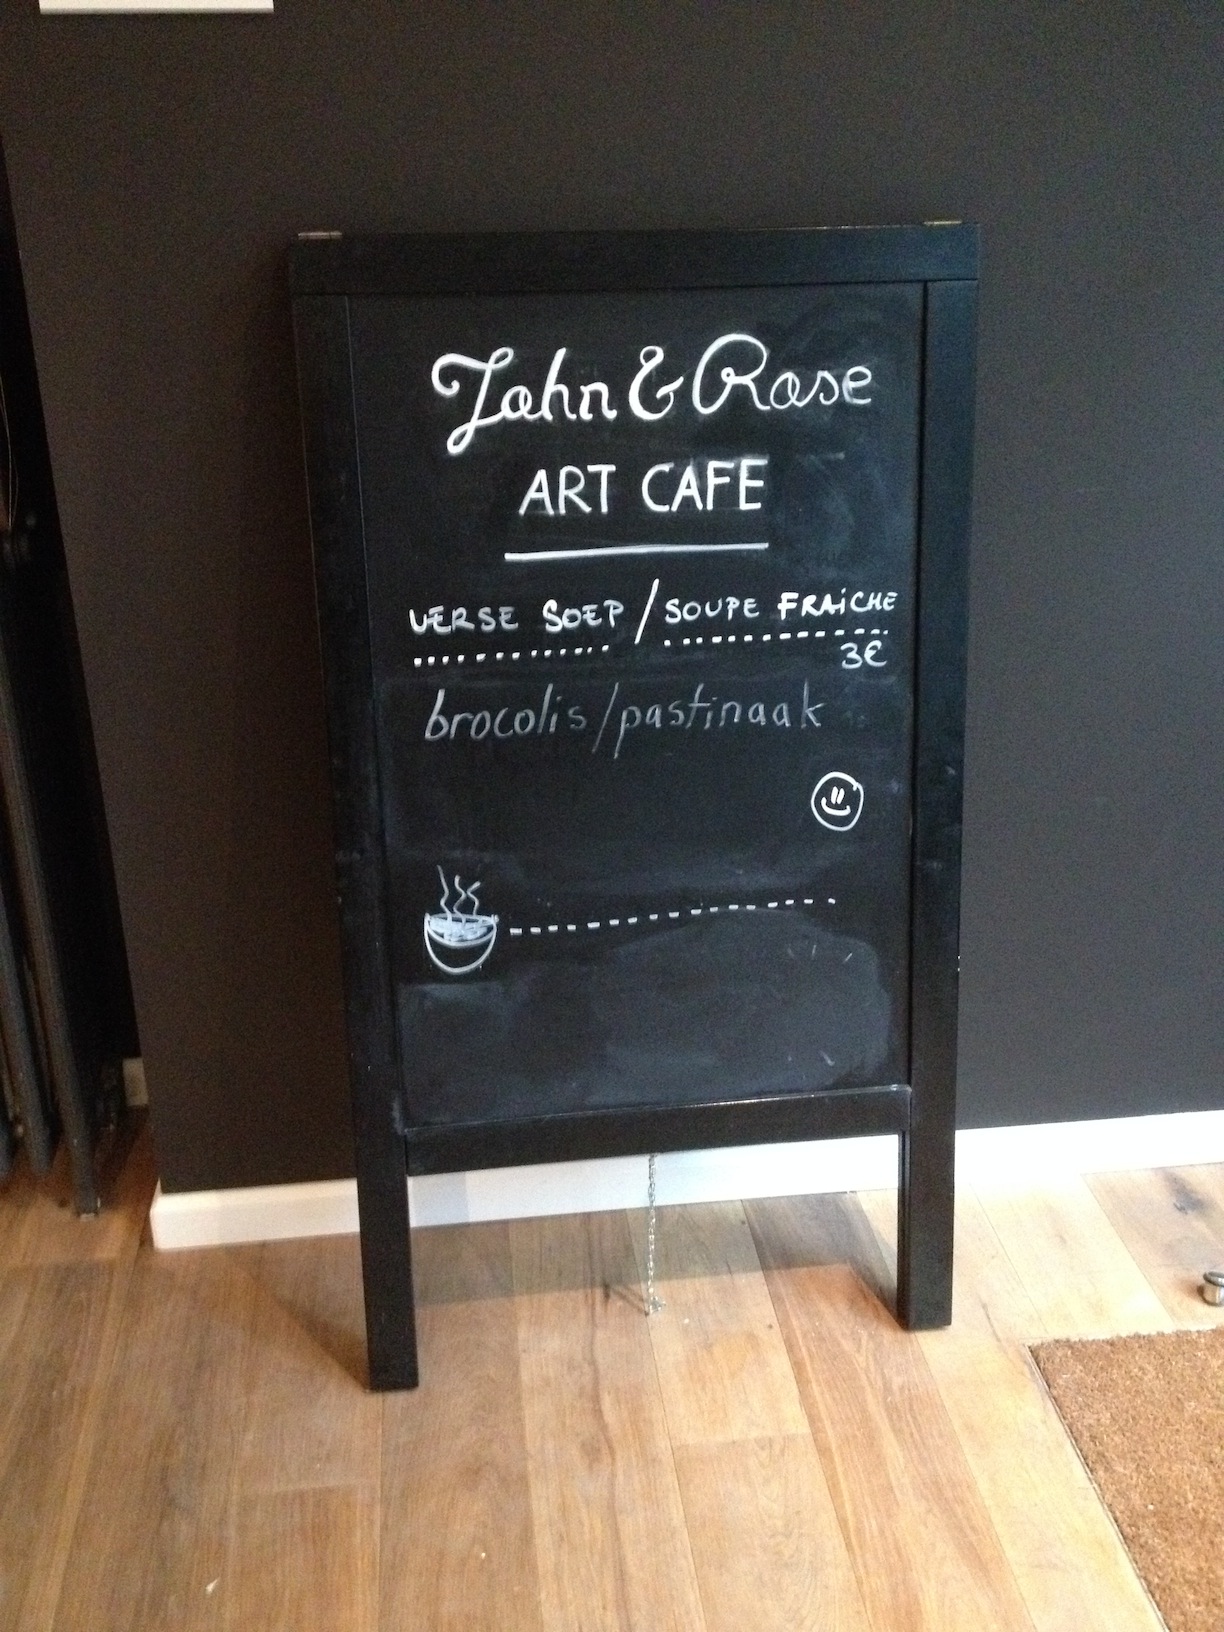 John & Rose
ART CAFE
VERSE SOEP / SOUPE FRAiCHE
3€
brocolis/pastinaak